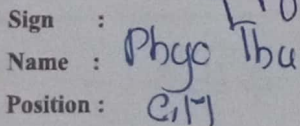 Sign :
Name : Phyo Thu
Position : C.M